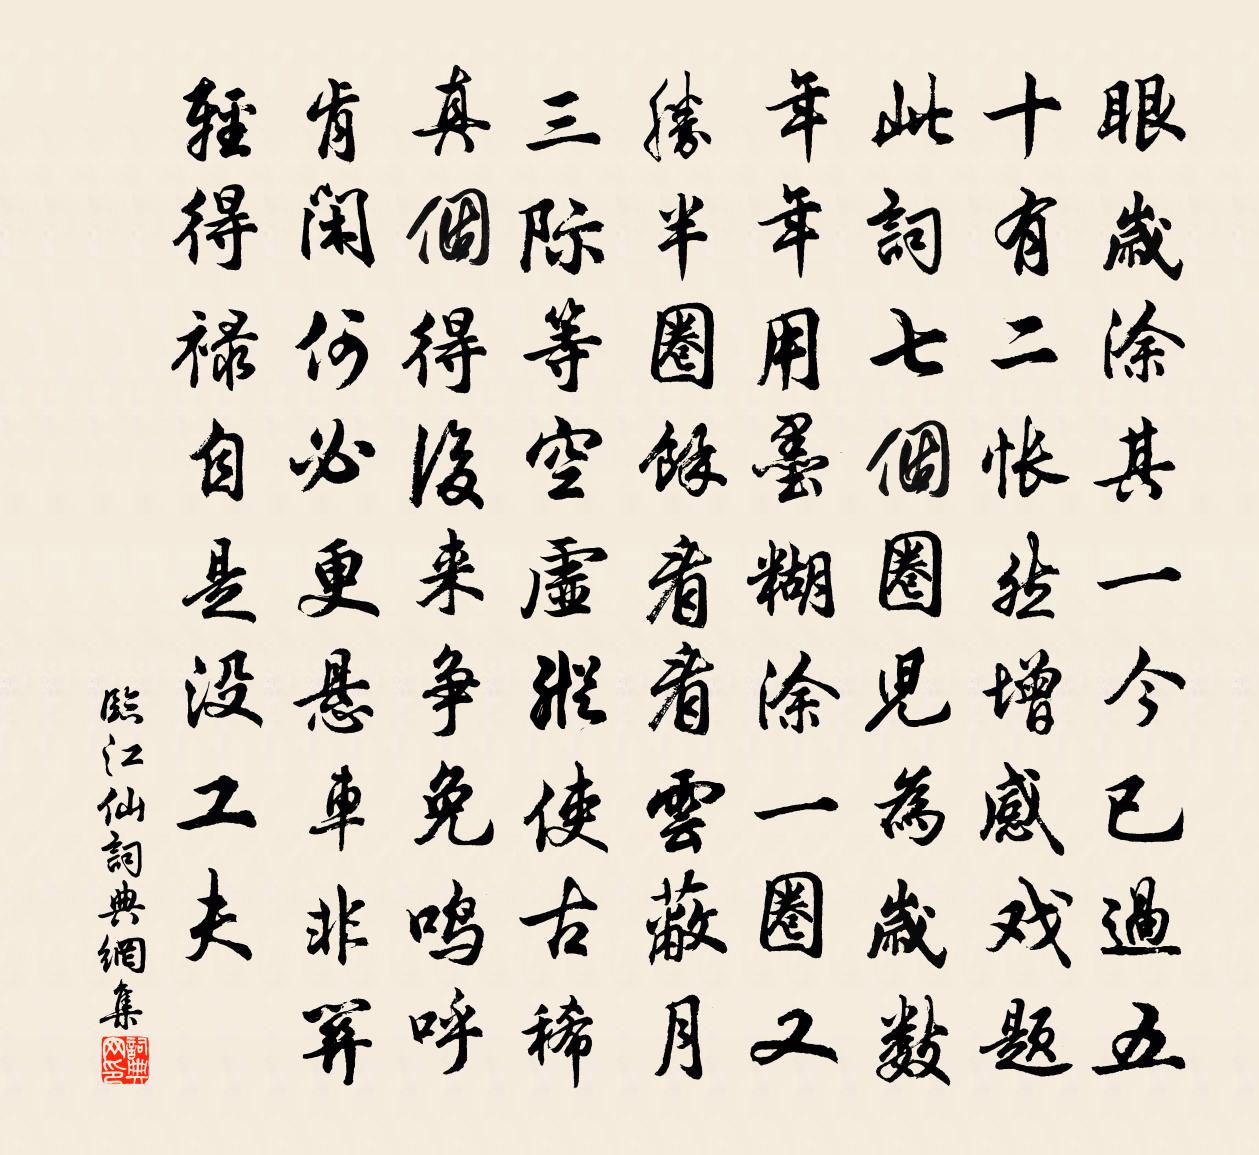 眼歲涂其一今已過五
十有二怅然增感戏题
此詞七個圈見為歲数
年年用墨糊涂一圈又
勝半圈餘看看雲蔽月
三际等空虚縱使古稀
真個得後来争免鸣呼
肯閑何必更悬車非關
輕得禄自是没工夫
臨江仙詞典網集
詞典网印